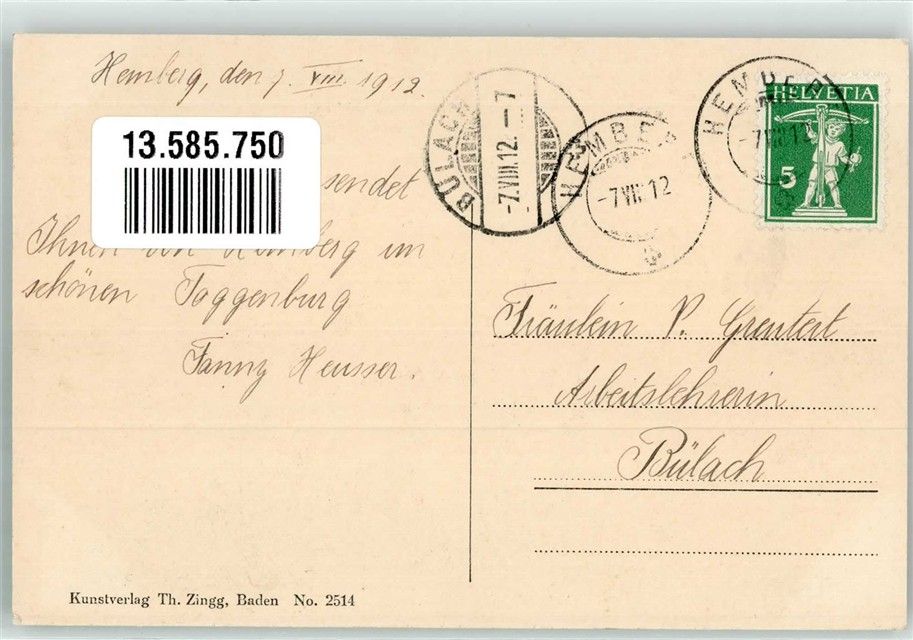 Hemberg, den 7. VIII. 1912.
13.585.750
sendet
Ihnen von Hemberg im
schönen Toggenburg
Fanny Heusser.
BÜLACH
-7.VIII.12.-7
HEMBERG
-7.VIII.12
HEMBERG
-7.VIII.12
HELVETIA
5
Fräulein P. Greutert
Arbeitslehrerin
Bülach
Kunstverlag Th. Zingg, Baden No. 2514